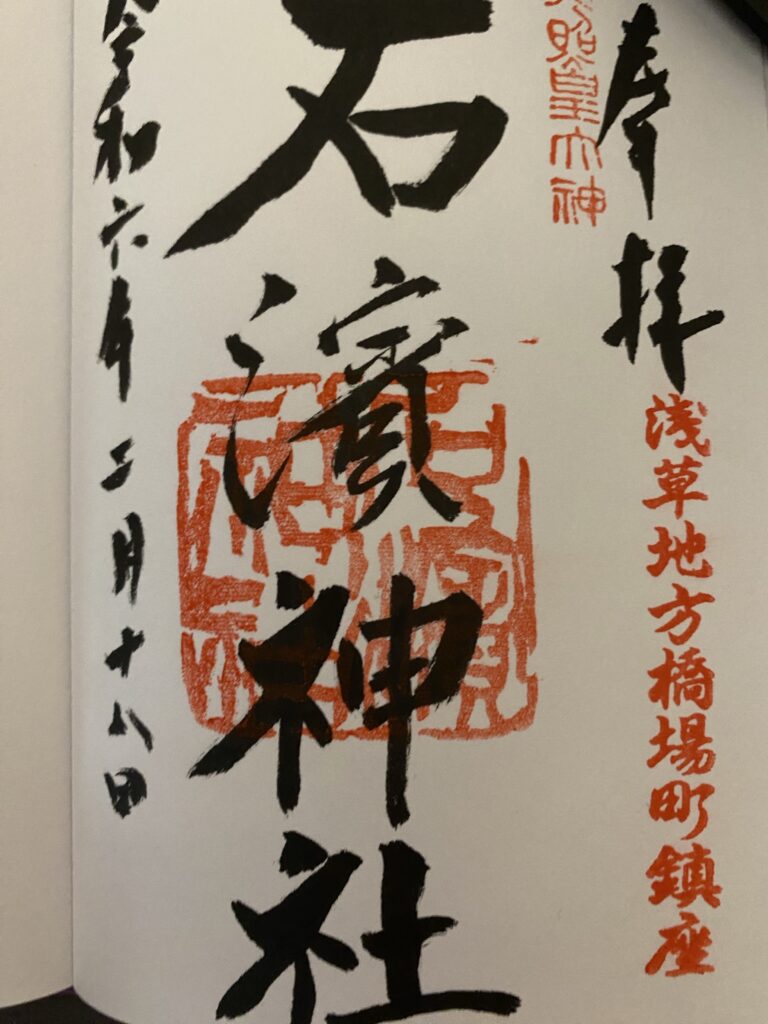 奉拝
浅草地方橋場町鎮座
照皇大神
石濱神社
令和六年二月十八日